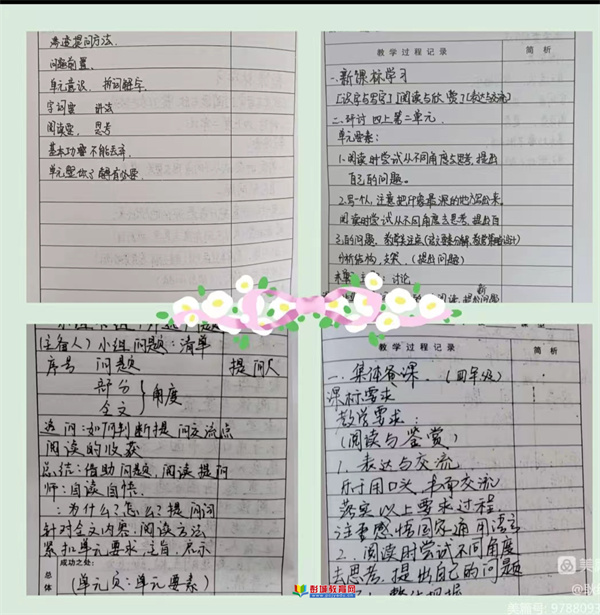 渗透提问方法.
问题前置.
单元意识
字词要 讲法
阅读要, 思考
基本功要不能丢弃.
单元整体了解有必要.
教学过程记录 简析
一.新课标学习
[识字与写字] [阅读与欣赏] [表达与交流]
二.研讨 四上第二单元.
单元要素:
1.阅读时尝试从不同角度去思考, 提出
自己的问题.
2.写一个人, 注意把印象最深的地方写出来.
阅读时尝试从不同角度去思考, 提出自
3.己的问题.
分析结构, (提出问题)
讨论
(主备人) 小组问题: 清单
序号 问题 提问人
部分
全文 } 角度
追问: 如何判断提问交流点
阅读的收获
总结: 借助问题, 阅读提问
师: 自读自悟.
: 为什么? 怎么? 提问词
针对全文内容, 阅读方法
紧扣单元要求, 主旨, 启示
成功之处:
总体 (单元页: 单元要素)
教学过程记录 简析
一. 集体备课. (四年级)
课标要求
教学要求:
(阅读与鉴赏)
1. 表达与交流
乐于用口头, 书面交流
落实以上要求过程
注重感悟国家通用语言
2. 阅读时尝试不同角度
去思考, 提出自己的问题
彭城教育网